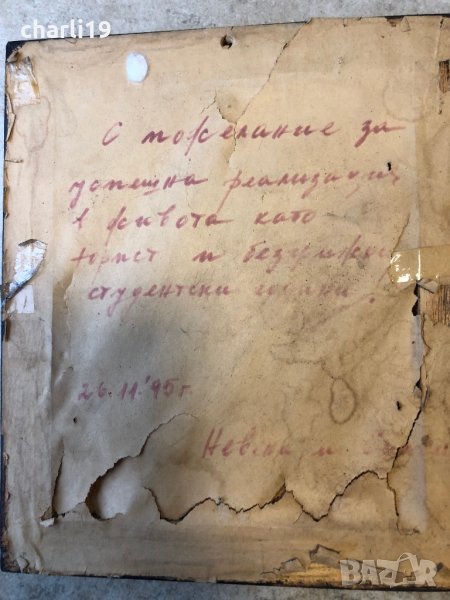 charli19
С пожелание за
успешна реализация
в живота като
юрист и безгрижни
студентски години.
26.11.'95 г
и
BAZAR